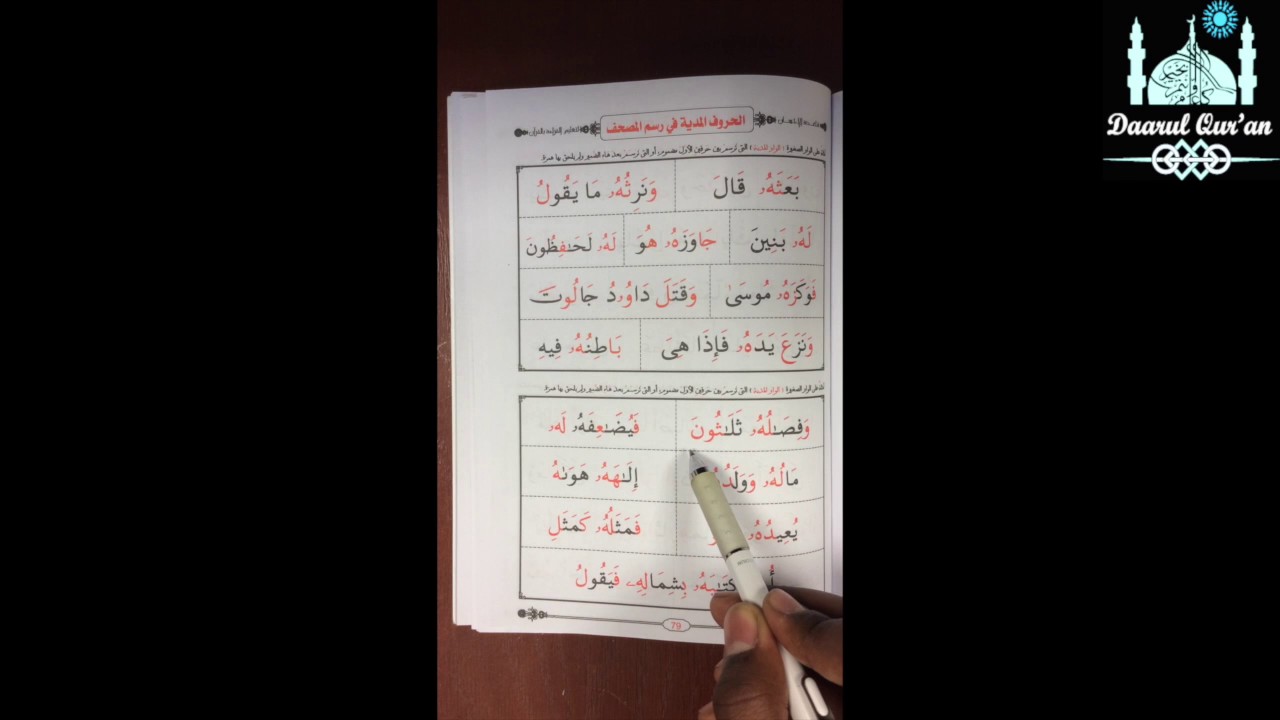 Daarul Qur'an
الحروف المدية في رسم المصحف
بَعَثَهُۥ قَالَ وَنَرِثُهُۥ مَا يَقُولُ
لَهُۥ بَنِينَ جَاوَزَهُۥ هُوَ لَهُۥ لَحَـٰفِظُونَ
فَوَكَزَهُۥ مُوسَىٰ وَقَتَلَ دَاوُۥدُ جَالُوتَ
وَنَزَعَ يَدَهُۥ فَإِذَا هِىَ بَاطِنُهُۥ فِيهِ
وَفِصَـٰلُهُۥ ثَلَـٰثُونَ فَيُضَـٰعِفَهُۥ لَهُۥ
مَالُهُۥ إِلَـٰهَهُۥ هَوَىٰهُ
يُعِيدُهُۥ فَمَثَلُهُۥ كَمَثَلِ
بِشِمَالِهِۦ فَيَقُولُ
79